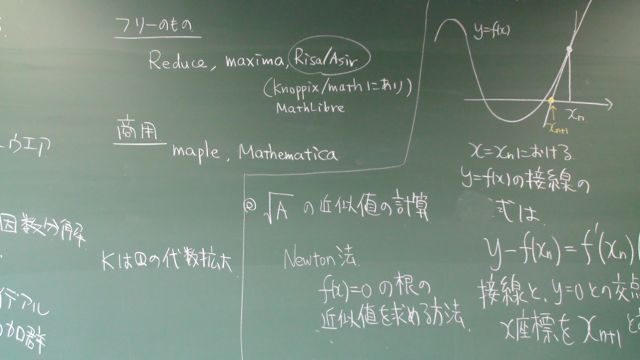 フリーのもの
Reduce, maxima, Risa/Asir
(Knoppix/mathにあり)
MathLibre
商用
maple, Mathematica
ウエア
因数分解
KはQの代数拡大
◎ √A の近似値の計算
Newton法
f(x)=0 の根の
近似値を求める方法.
y=f(x)
xn
xn+1
x=xnにおける
y=f(x)の接線の
式は
y-f(xn)=f'(xn)(
接線と, y=0との交点
x座標をxn+1と